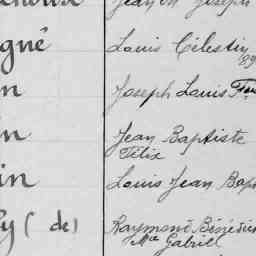 Jean Joseph
gné Louis Célestin
n Joseph Louis
n Jean Baptiste
Félix
in Louis Jean Bap
y ( de) Raymond Bénédict
Mie Gabriel